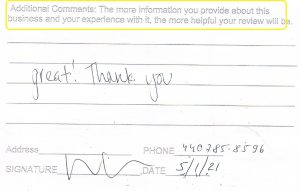 Additional Comments: The more information you provide about this
business and your experience with it, the more helpful your review will be.
great! Thank you
Address
PHONE 440 785-8596
SIGNATURE DATE 5/1/21